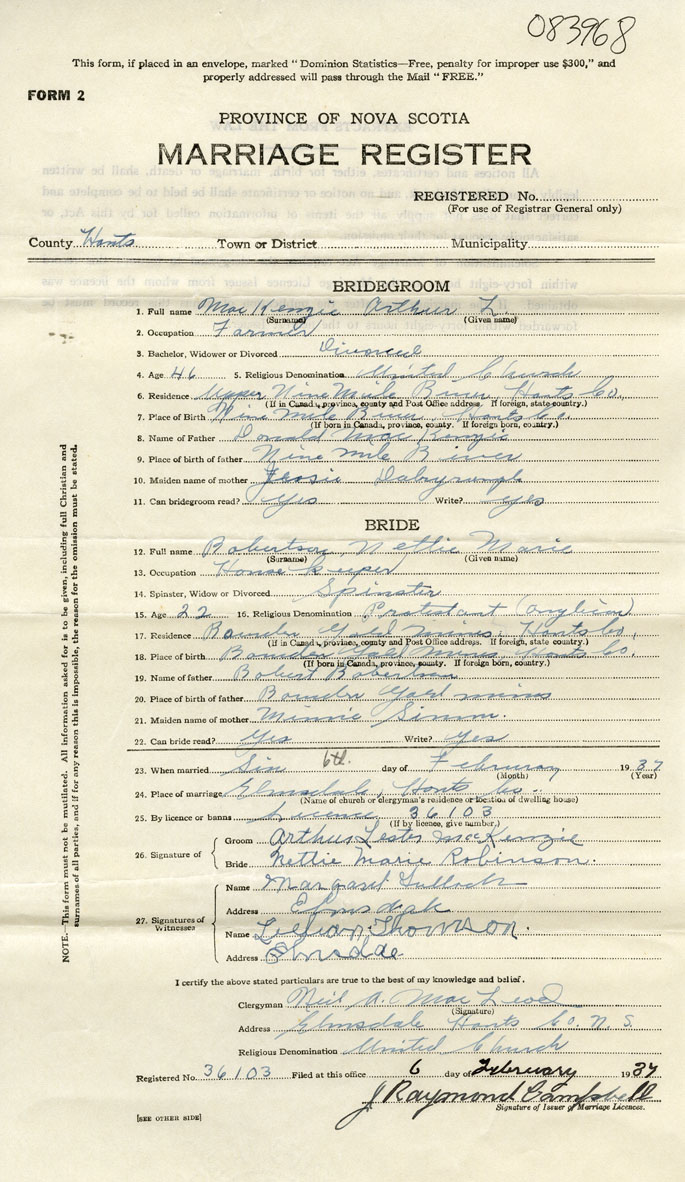 083968
This form, if placed in an envelope, marked "Dominion Statistics—Free, penalty for improper use $300," and
properly addressed will pass through the Mail "FREE."
FORM 2
PROVINCE OF NOVA SCOTIA
MARRIAGE REGISTER
REGISTERED No.
(For use of Registrar General only)
County Hants Town or District Municipality
BRIDEGROOM
1. Full name MacKenzie Arthur L.
(Surname) (Given name)
2. Occupation Farmer
3. Bachelor, Widower or Divorced Divorced
4. Age 46 5. Religious Denomination United Church
6. Residence Upper Nine Mile River, Hants Co.,
(If in Canada, province, county and Post Office address. If foreign, state country.)
7. Place of Birth Nine Mile River, Hants Co.
(If born in Canada, province, county. If foreign born, country.)
8. Name of Father Donald MacKenzie
9. Place of birth of father Nine mile River
10. Maiden name of mother Jessie Dalrymple
11. Can bridegroom read? Yes Write? Yes
BRIDE
12. Full name Robertson, Nettie Marie
(Surname) (Given name)
13. Occupation House keeper
14. Spinster, Widow or Divorced Spinster
15. Age 22 16. Religious Denomination Protestant
17. Residence Gold mines, Hants Co.,
(If in Canada, province, county and Post Office address. If foreign, state country.)
18. Place of birth Gold Mines Hants Co.
(If born in Canada, province, county. If foreign born, country.)
19. Name of father Robert Robertson
20. Place of birth of father Gold mines
21. Maiden name of mother Minnie Simm.
22. Can bride read? Yes Write? Yes
23. When married Six 6th. day of February 1937
(Month) (Year)
24. Place of marriage Elmsdale, Hants Co.
(Name of church or clergyman's residence or location of dwelling house)
25. By licence or banns Licence 36103
(If by licence, give number.)
26. Signature of
Groom Arthur Lester MacKenzie
Bride Nettie Marie Robinson.
27. Signatures of Witnesses
Name Margaret
Address Elmsdale
Name Lillian Thompson.
Address Elmsdale
I certify the above stated particulars are true to the best of my knowledge and belief.
Clergyman Neil A. MacLeod
(Signature)
Address Elmsdale Hants Co. N. S.
Religious Denomination United Church
Registered No. 36103 Filed at this office 6 day of February 1937
J Raymond Campbell
Signature of Issuer of Marriage Licences.
[SEE OTHER SIDE]
NOTE.—This form must not be mutilated. All information asked for is to be given, including full Christian and
surnames of all parties, and if for any reason this is impossible, the reason for the omission must be stated.